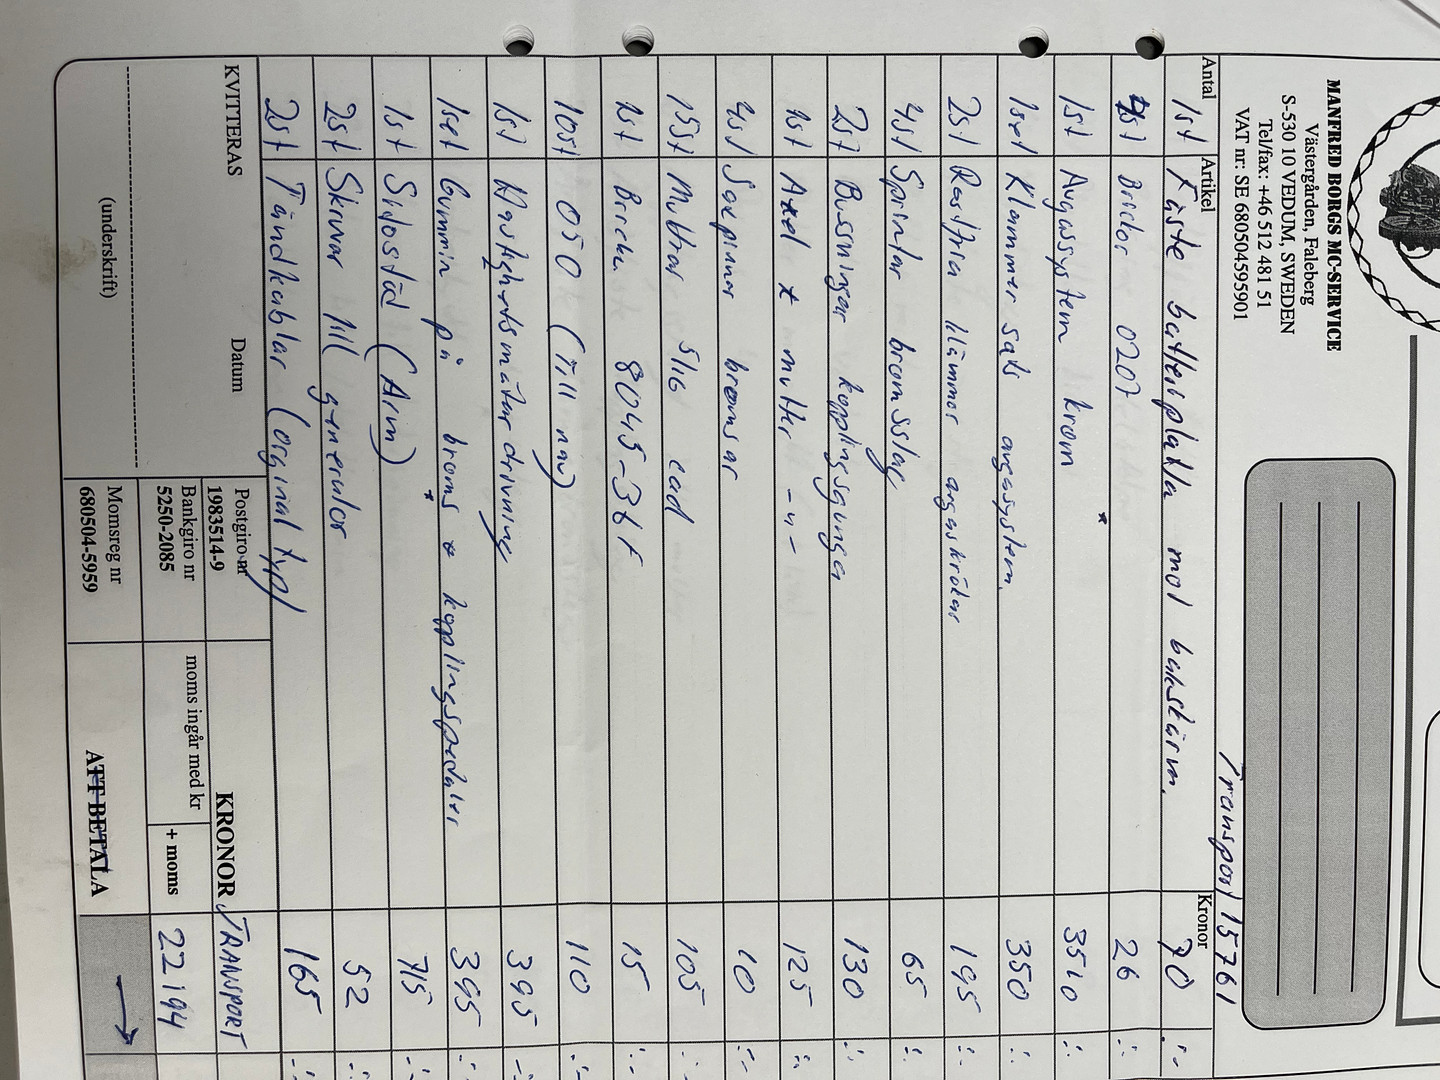 MANFRED BORGS MC-SERVICE
Västergården, Faleberg
S-530 10 VEDUM, SWEDEN
Tel/fax: +46 512 481 51
VAT nr: SE 680504595901
Transport 15761
Antal Artikel Kronor
1st Fäste batteriplåtla mot bakskärm. 70 :-
4st Brickor 0207 26 :-
1st Avgassystem krom 3510 :-
1set Klammer sats avgassystem. 350 :-
2st Rostfria klämmor avgaskrökar 195 :-
4st Sprintar bromsstag 65 :-
2st Bussningar kopplingsgunga 130 :-
1st Axel + mutter -"- 125 :-
4st Saxpinnar bromsar 10 :-
15st Muttrar 5/16 cad 105 :-
1st Bricka 8045-36F 15 :-
10st 050 (Till nav) 110 :-
1st Hastighetsmätardrivning 395 :-
1set Gummin på broms + kopplingspedaler 395 :-
1st Sidostöd (Arm) 715 :-
2st Skruvar till generator 52 :-
2st Tändkablar (orginal typ) 165 :-
KVITTERAS Datum
(underskrift)
Postgiro nr
1983514-9
Bankgiro nr
5250-2085
Momsreg nr
680504-5959
KRONOR TRANSPORT
moms ingår med kr
+ moms 22194
ATT BETALA →